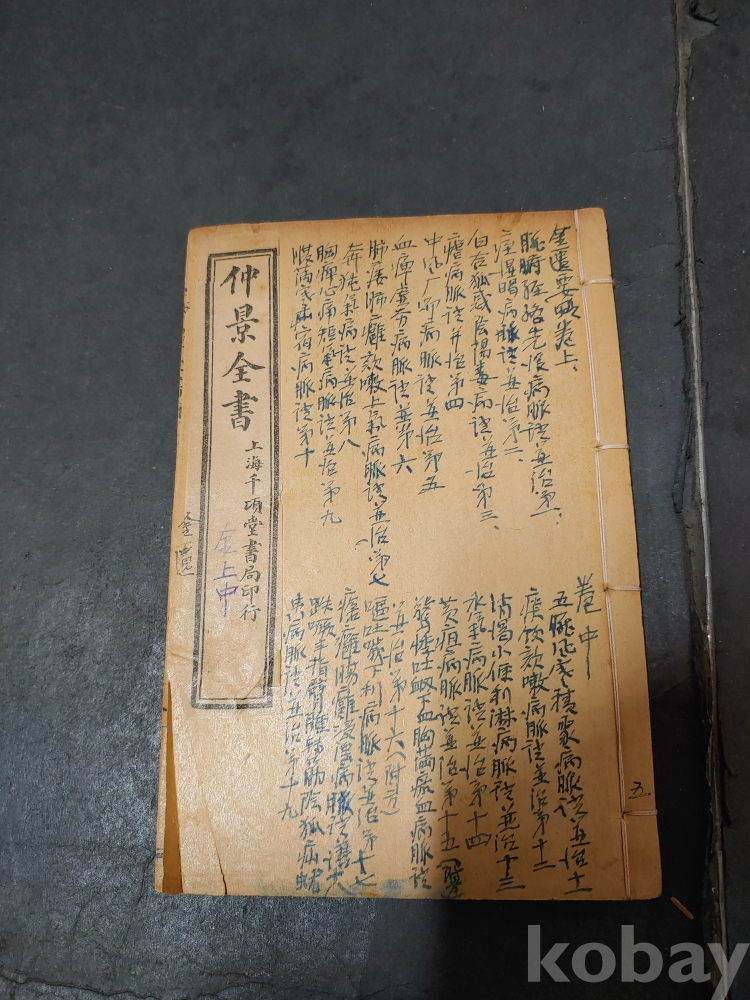 金匱要畧卷上、
臟腑經絡先後病脈證並治第一、
痙濕暍病脈證並治第二、
百合狐惑陰陽毒病證並治第三、
瘧病脈證并治第四
中風厂節病脈證並治第五
血痺虛勞病脈證並第六
肺痿肺癰欬嗽上氣病脈證並治第七
奔豚氣病證並治第八
胸痺心痛短氣病脈證並治第九
腹滿寒疝宿病脈證第十
卷中
五臟風寒積聚病脈證並治十一
痰飲欬嗽病脈證並治第十二
消渴小便利淋病脈證並治十三
水氣病脈證並治第十四
黃疸病脈證並治第十五
驚悸吐衂下血胸滿瘀血病脈證
並治第十六
嘔吐噦下利病脈證並治第十七
瘡癰腸癰浸淫病脈證
趺蹶手指臂腫轉筋陰狐疝蚘
虫病脈證並治第十九
五.
仲景全書
上海千頃堂書局印行
金上中
金匱
kobay